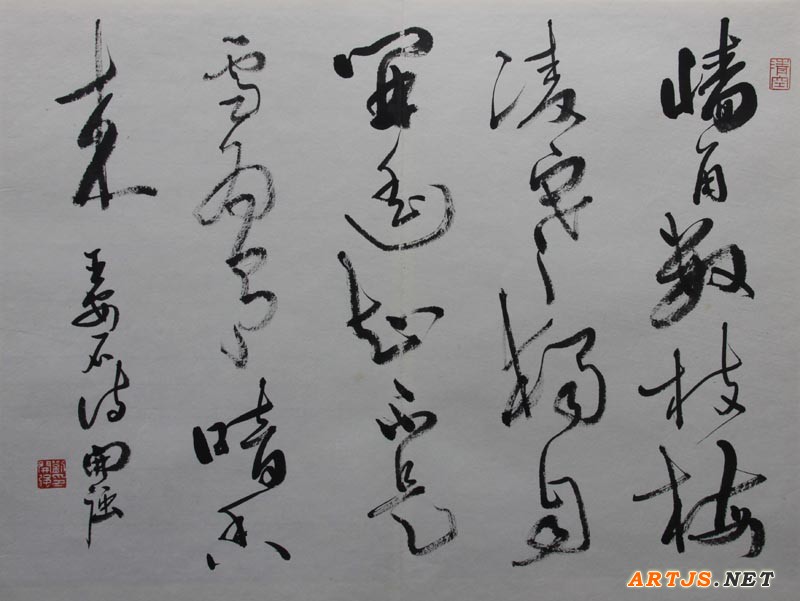 墙角数枝梅
凌寒獨自
開遥知不是
雪為有暗香
来
王安石诗 開
ARTJS.NET